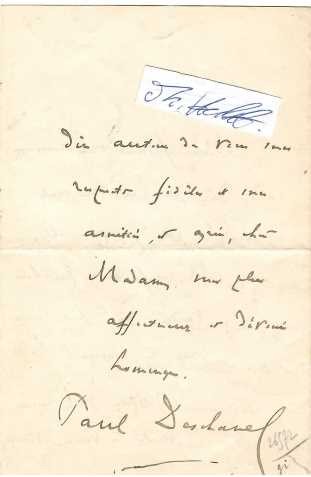 autour de vous mes
respects fidèles et mes
amitiés, et agréez, chère
Madame, mes plus
affectueux et dévoués
hommages.
Paul Deschanel